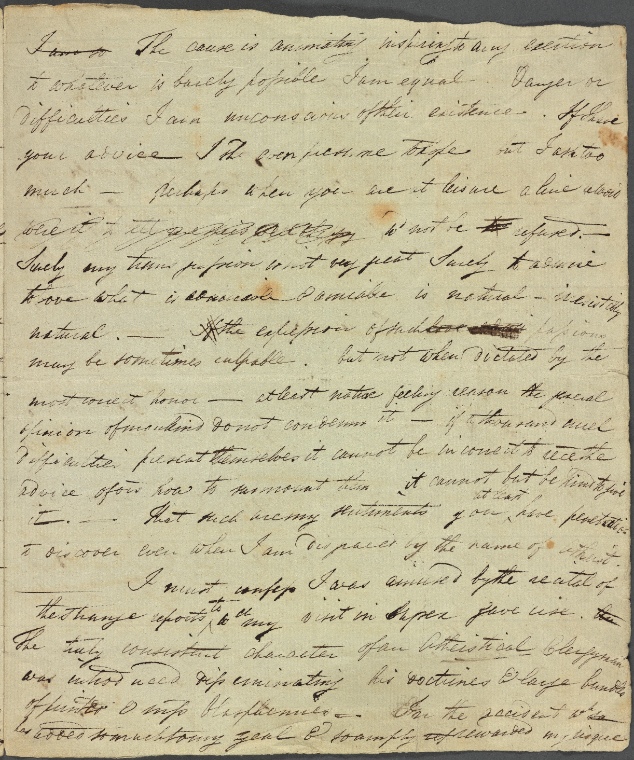 I am so The cause is animating inspiring to any exertion
to whatever is barely possible I am equal. Danger or
difficulties I am unconscious of their existence. If I have
your advice I sh even presume to hope but I ask too
much — perhaps when you are at leisure a line
were it wd not be refused. —
Surely my transgression is not very great Surely to admire
to love what is admirable & amiable is natural — irresistibly
natural. — If the expression of such passions
may be sometimes culpable. but not when dictated by the
most correct honor — at least nature feeling reason the general
opinion of mankind do not condemn it — if a thousand cruel
difficulties present themselves it cannot be incorrect to receive the
advice of how to surmount them it cannot but be kind to give
it. — That such are my sentiments you at least have penetration
to discover even when I am disgraced by the name of
I must confess I was amused by the recital of
the strange reports to wh my visit in Sussex gave rise.
The truly consistent character of an Atheistical Clergyman
was introduced disseminating his doctrines & large bundles
of printed & mss blasphemies — For the accident wh
has added so much to my zeal & so amply rewarded my